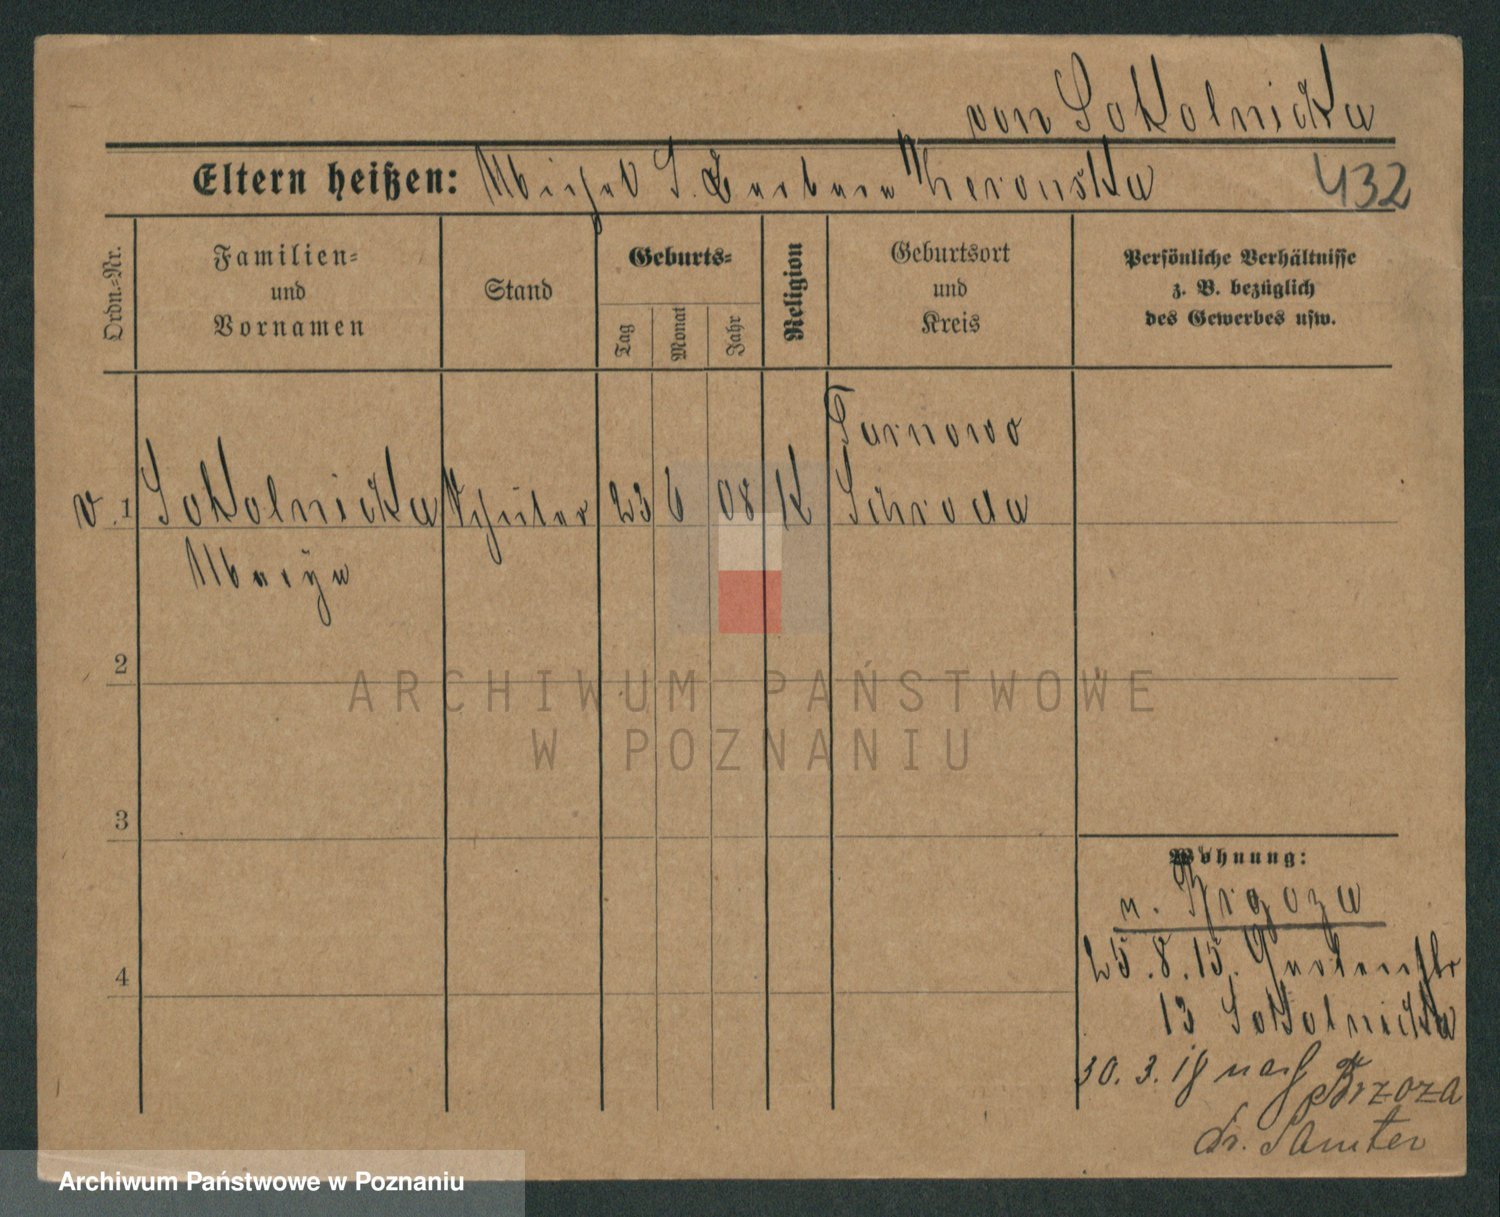 von Sokolnicka
Eltern heißen: Michal S. Barbara
432
Ordn.-Nr.
Familien-
und
Vornamen
Stand
Geburts-
Tag
Monat
Jahr
Religion
Geburtsort
und
Kreis
Persönliche Verhältnisse
z. B. bezüglich
des Gewerbes usw.
Turnowo
v. 1 Sokolnicka 23 6 08 K Schroda
Marya
2
3
4
Wohnung:
25.8.15. Gartenstr
13 Sokolnicka
30. 3. 18 nach Brzoza
Kr. Samter
ARCHIWUM PAŃSTWOWE
W POZNANIU
Archiwum Państwowe w Poznaniu